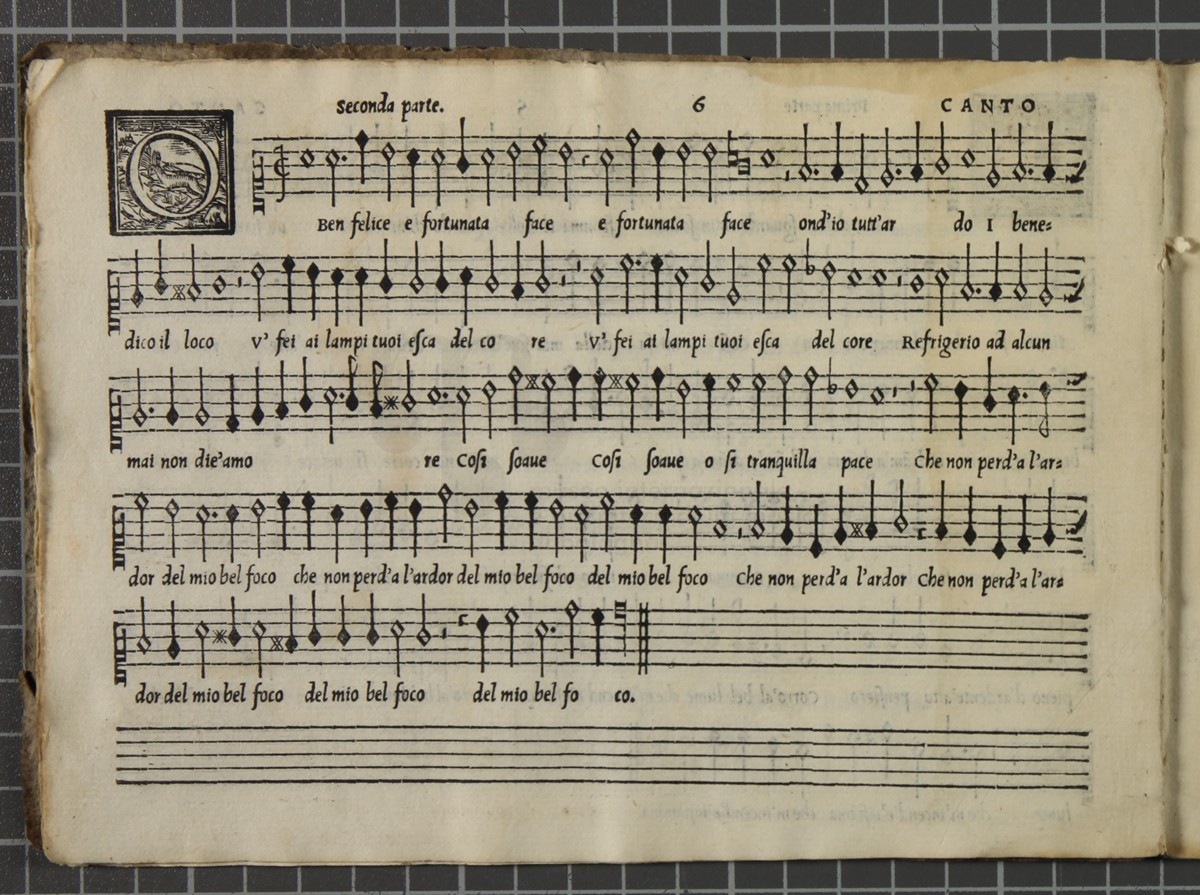 Seconda parte. 6 CANTO
O Ben felice e fortunata face e fortunata face ond'io tutt'ar do I bene=
dico il loco V' fei ai lampi tuoi esca del co re V' fei ai lampi tuoi esca del core Refrigerio ad alcun
mai non die'amo re Cosi soaue Cosi soaue o si tranquilla pace Che non perd'a l'ar=
dor del mio bel foco che non perd'a l'ardor del mio bel foco del mio bel foco Che non perd'a l'ardor Che non perd'a l'ar=
dor del mio bel foco del mio bel foco del mio bel fo co.